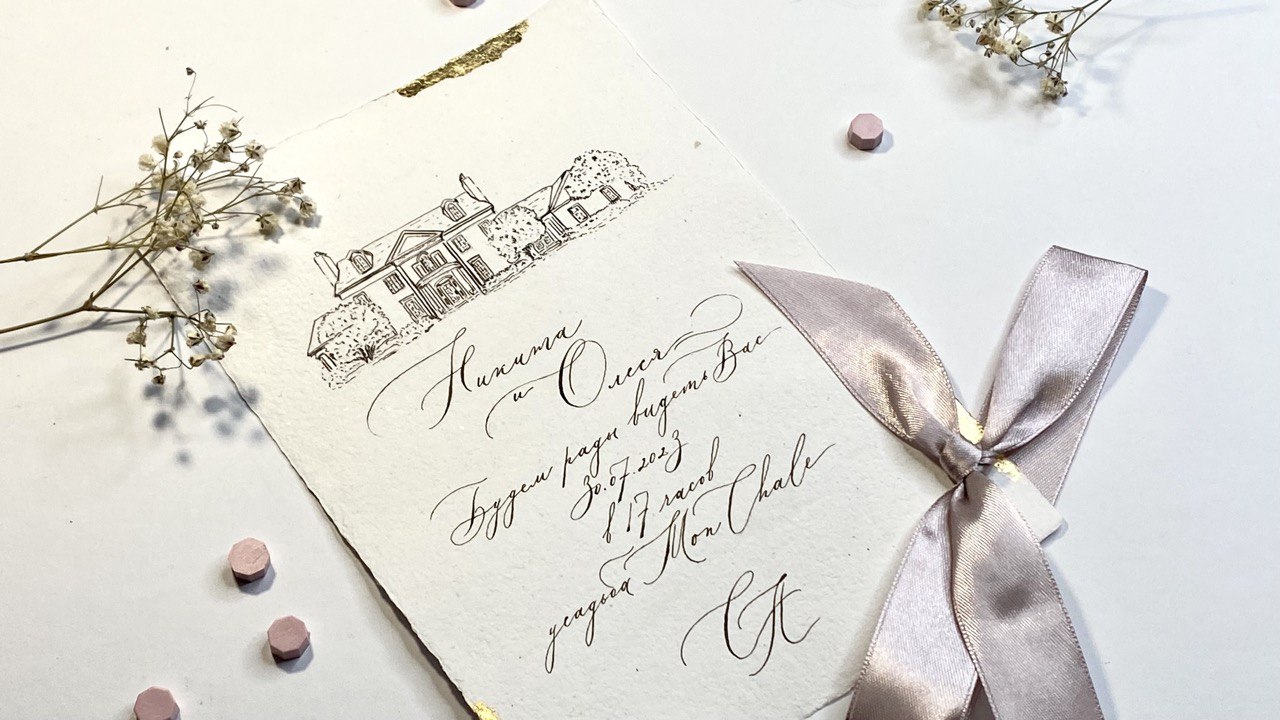 Никита
и Олеся
Будем рады видеть Вас
30.07.2023
в 17 часов
усадьба Mon Chale
СА